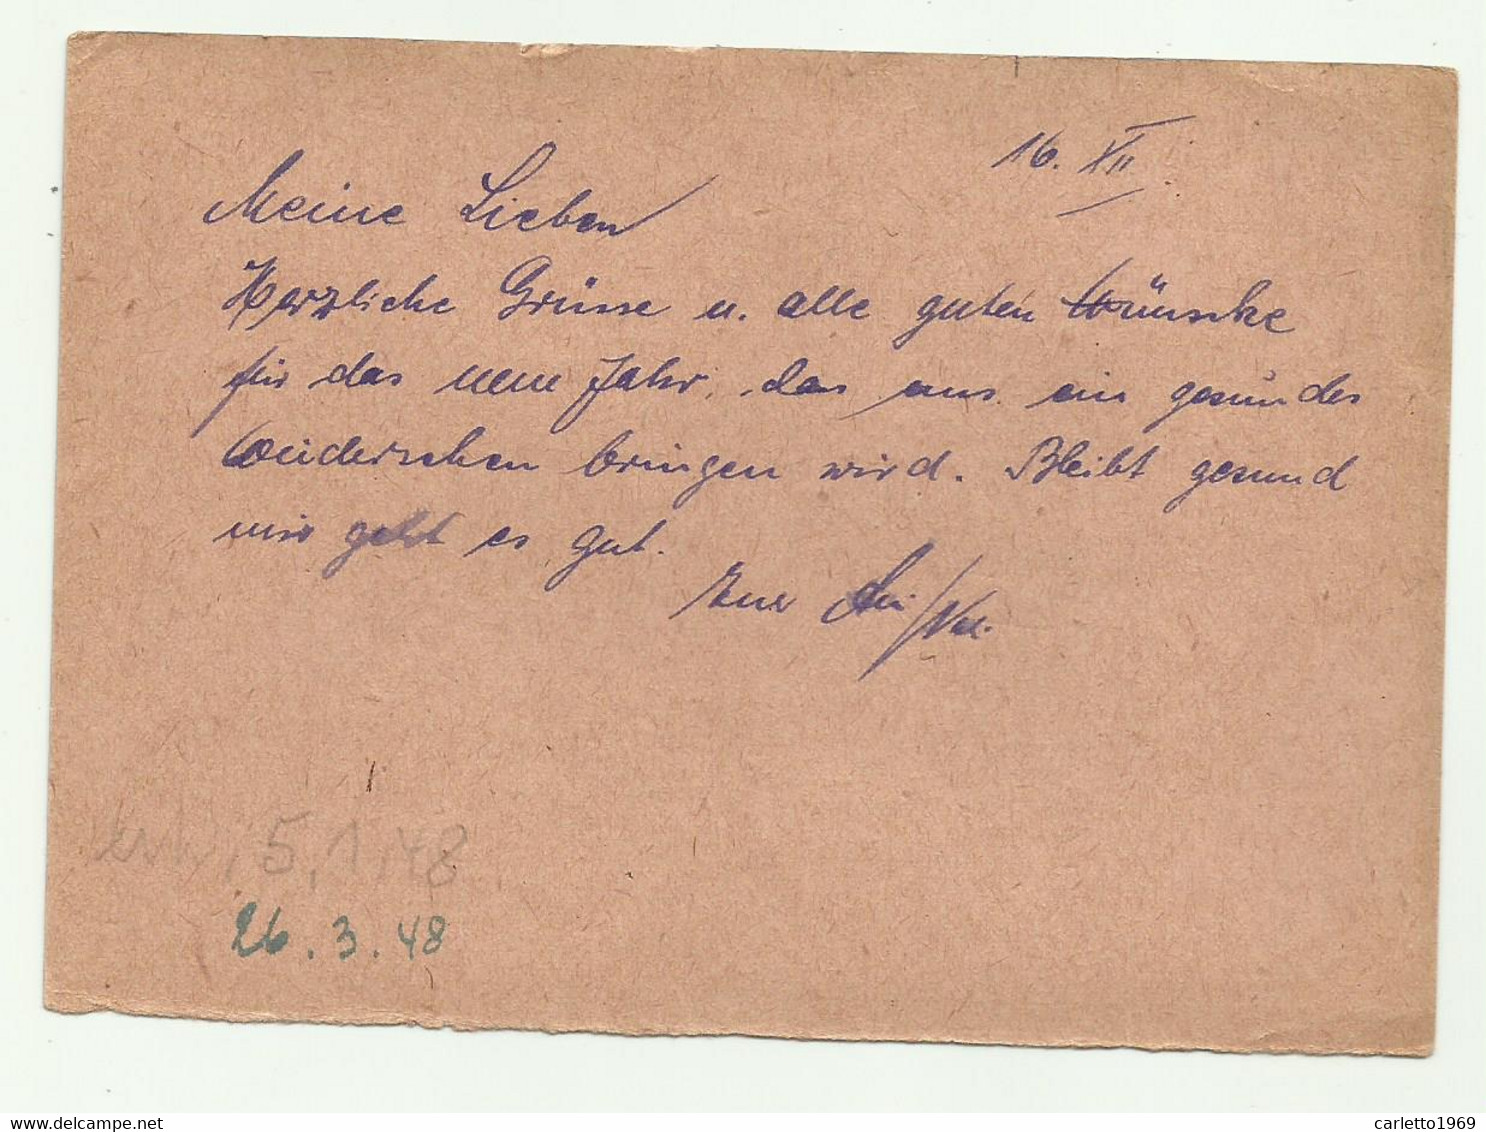 16. XII.
Meine Lieben
Herzliche Grüsse u. alle guten Wünsche
für das neue Jahr, das uns ein gesundes
Wiedersehen bringen wird. Bleibt gesund
mir geht es gut.
Euer
5.1.48
26.3.48
carletto1969
delcampe.net